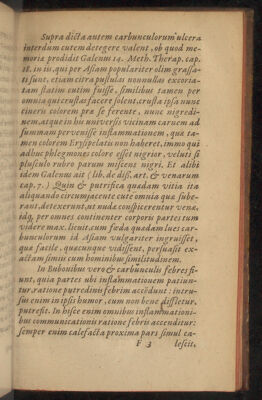 Supra dicta autem carbunculorum ulcera
interdum cutem detegere valent, ob quod me-
moria prodidit Galenus 14. Meth. Therap. cap.
18. in iis, qui per Asiam populariter olim grassa-
ti sunt, etiam citra pustulas nonnullas excoria-
tam statim cutim fuisse, similibus tamen per
omnia qui crustas facere solent, crusta ipsa nunc
cineris colorem præ se ferente, nunc nigredi-
nem, atque in his universis vicinam carnem ad
summam pervenisse inflammationem, quæ ta-
men colorem Erysipelatis non haberet, immo qui
adhuc phlegmones colore esset nigrior, veluti si
fusculo rubro parum misceas nigri. Et alibi
idem Galenus ait (lib. de diss. art. & venarum
cap. 7.) Quin & putrifica quadam vitia ita
aliquando circumjacente cute omnia quæ sube-
rant, deterxerunt, ut nudæ conspicerentur venæ,
idq, per omnes continenter corporis partes tum
videre max. licuit, cum fœda quædam lues car-
bunculorum id Asiam vulgariter ingruisset,
qua facile, quacunque vidisset, persuasit ex-
actam simiis cum hominibus similitudinem.
In Bubonibus vero & carbunculis febres fi-
unt, quia partes ubi inflammationem patiun-
tur, ratione putredinis febrim accēdunt: intru-
sus enim in ipsis humor, cum non bene diffletur,
putrescit. In hisce enim omnibus inflammationi-
bus communicationis ratione febris accenditur:
semper enim calefacta proxima pars simul ca-
F 3 lescit,